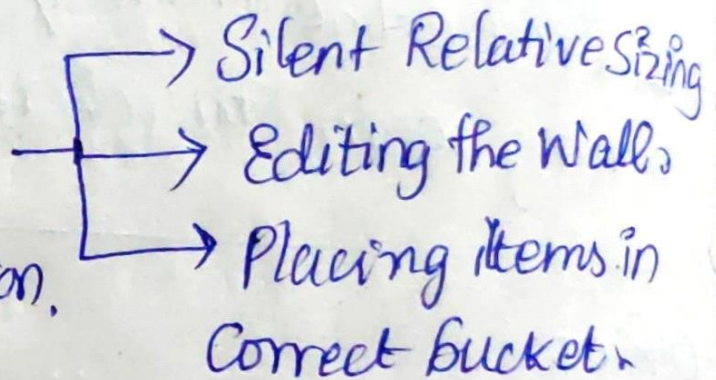 Silent Relative Sizing
Editing the Wall.
Placing items in
on.
Correct bucket.